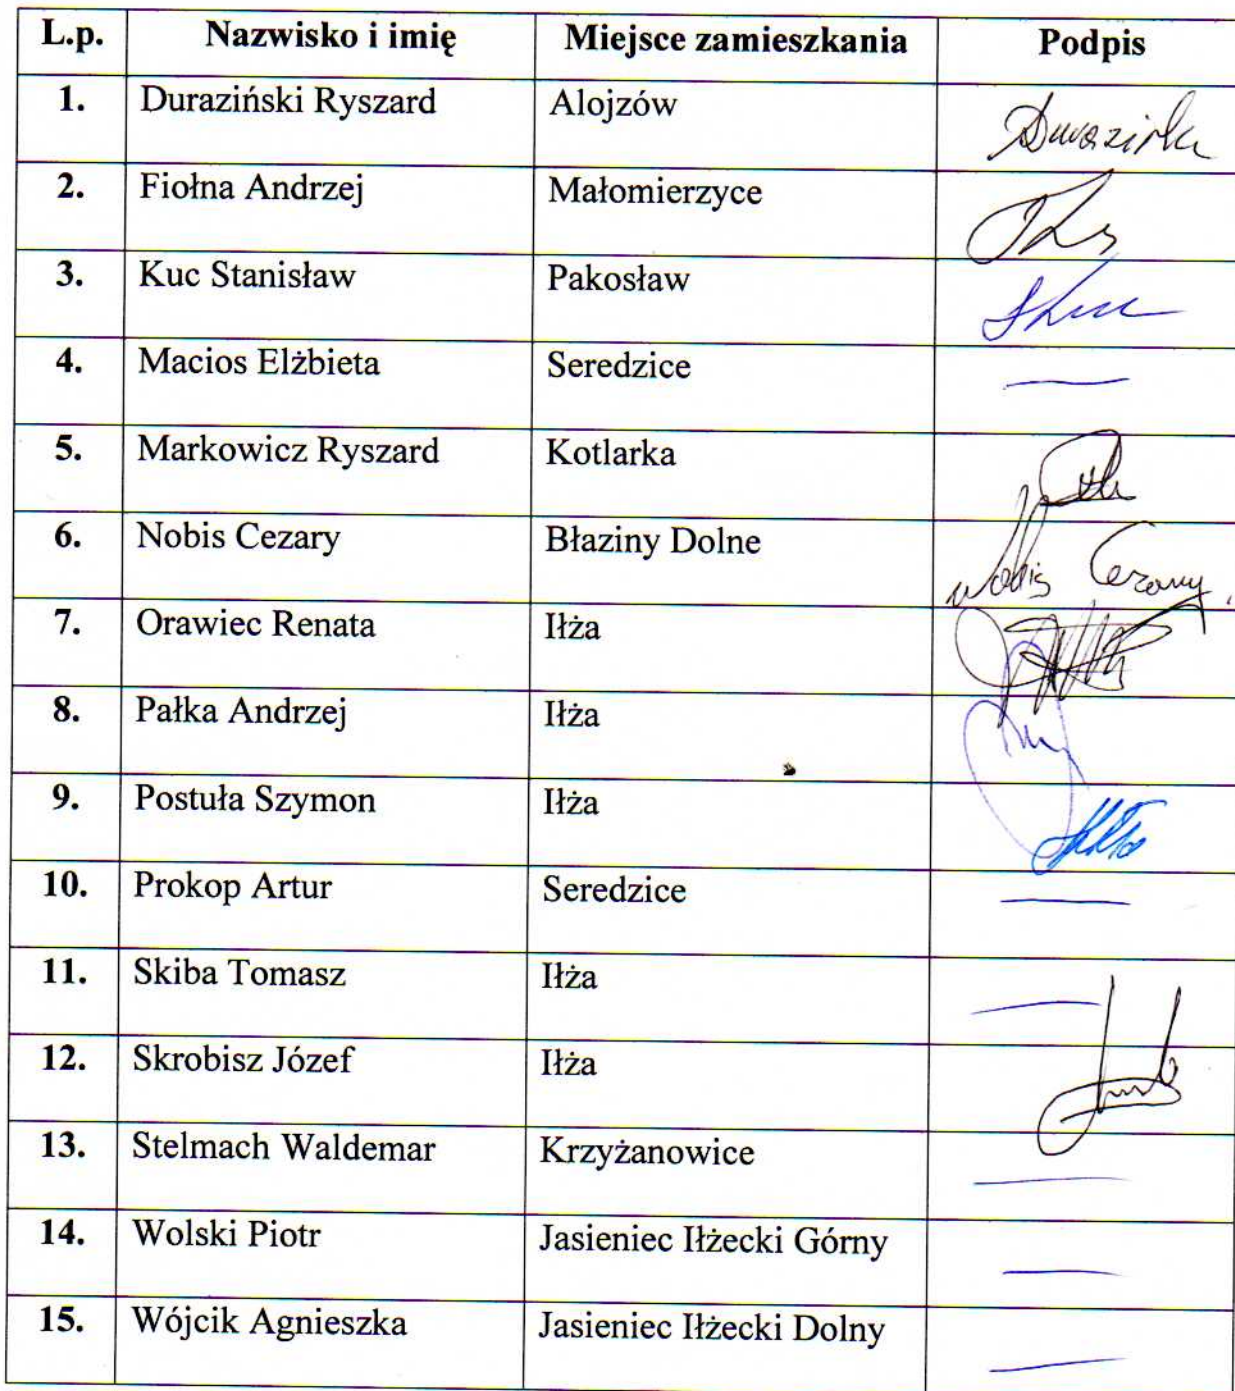 L.p. Nazwisko i imię Miejsce zamieszkania Podpis
1. Duraziński Ryszard Alojzów
2. Fiołna Andrzej Małomierzyce
3. Kuc Stanisław Pakosław
4. Macios Elżbieta Seredzice —
5. Markowicz Ryszard Kotlarka
6. Nobis Cezary Błaziny Dolne Nobis Cezary
7. Orawiec Renata Iłża
8. Pałka Andrzej Iłża
9. Postuła Szymon Iłża
10. Prokop Artur Seredzice —
11. Skiba Tomasz Iłża —
12. Skrobisz Józef Iłża
13. Stelmach Waldemar Krzyżanowice —
14. Wolski Piotr Jasieniec Iłżecki Górny —
15. Wójcik Agnieszka Jasieniec Iłżecki Dolny —